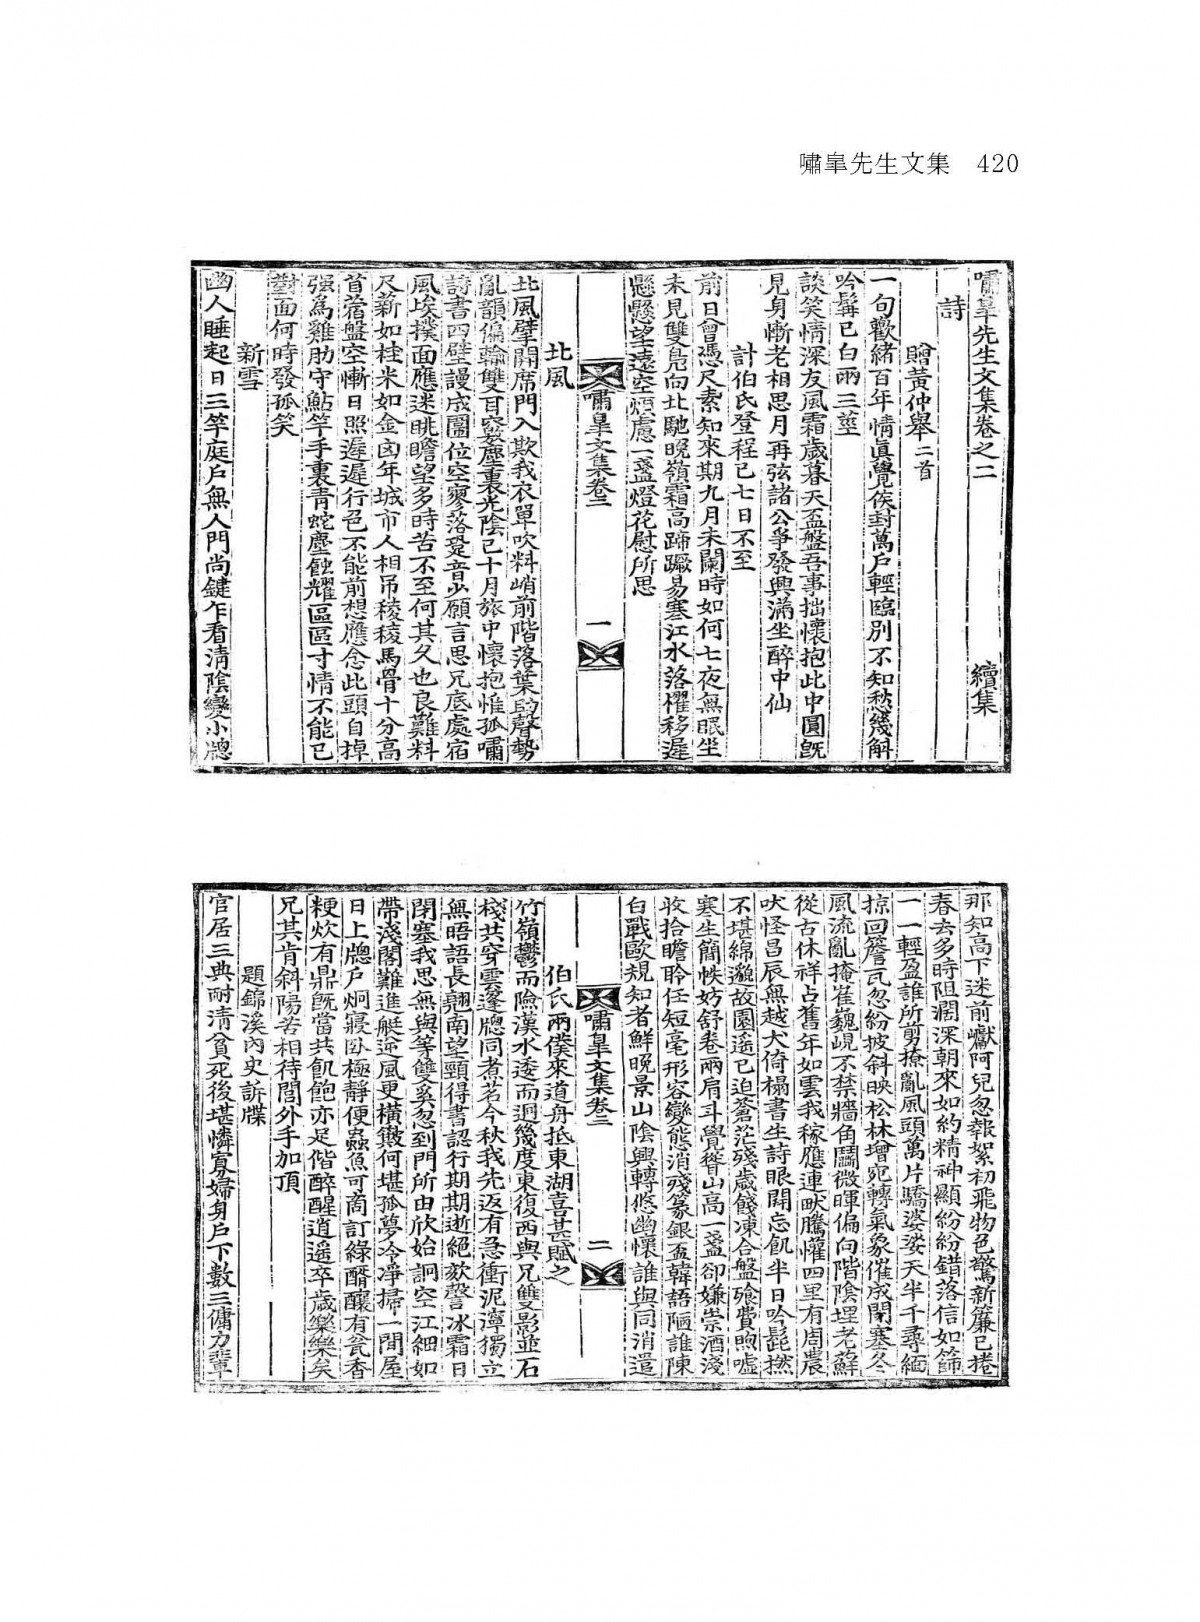 嘯皐先生文集 420
嘯皐先生文集卷之二 續集
詩
贈黃仲舉二首
一旬歡緖百年情眞覺侯封萬戶輕臨別不知愁幾斛
吟髯已白兩三莖
談笑情深友風霜歲暮天盃盤吾事拙懷抱此中圓旣
見身慚老相思月再弦諸公爭發興滿坐醉中仙
計伯氏登程已七日不至
前日曾憑尺素知來期九月未闌時如何七夜無眠坐
未見雙鳧向北馳晩嶺霜高蹄蹶易塞江水落櫂移遲
懸懸望遠空煩慮一盞燈花慰所思
嘯皐文集卷二 一
北風
北風擘開席門入欺我衣單吹料峭前階落葉助聲勢
亂韻偏輪雙耳竅塵裏光陰已十月旅中懷抱惟孤嘯
詩書四壁謾成圖位空寥落跫音少願言思兄底處宿
風埃撲面應迷眺瞻望多時苦不至何其久也良難料
尺薪如桂米如金凶年城市人相吊稜稜馬骨十分高
首蓿盤空慚日照遲遲行色不能前想應念此頭自掉
强爲雞肋守鮎竿手裏靑蛇塵蝕耀區區寸情不能已
對面何時發孤笑
新雪
幽人睡起日三竿庭戶無人門尚鍵乍看淸陰變小牕
那知高下迷前巘阿兒忽報絮初飛物色驚新簾已捲
春去多時阻濶深朝來如約精神顯紛紛錯落信如篩
一一輕盈誰所剪撩亂風頭萬片驕婆娑天半千尋緬
掠回簷瓦忽紛披斜映松林增宛轉氣象催成閉塞冬
風流亂掩崔巍峴不禁牆角鬪微暉偏向階陰埋老蘚
從古休祥占舊年如雲我稼應連畎騰懽四里有周農
吠怪昌辰無越犬倚榻書生詩眼開忘飢半日吟髭撚
不堪綿邈故園遙已迫蒼茫殘歲餞凍合盤飱費煦噓
寒生簡帙妨舒卷兩肩斗覺聳山高一盞卻嫌崇酒淺
收拾瞻聆任短毫形容變態消殘篆銀盃韓語陋誰陳
白戰歐規知者鮮晩景山陰興轉悠幽懷誰與同消遣
嘯皐文集卷二 二
伯氏兩僕來道舟抵東湖喜甚賦之
竹嶺鬱而險漢水逶而迥幾度東復西與兄雙影並石
棧共穿雲蓬牕同煮茗今秋我先返有急衝泥濘獨立
無晤語長翹南望頸得書認行期期逝絕欬謦氷霜日
閉塞我思無與等雙奚忽到門所由欣始詗空江細如
帶淺閣難進艇逆風更橫皺何堪孤夢冷凈掃一間屋
日上牕戶炯寢卧極靜便蟲魚可商訂綠醑釀有瓮香
粳炊有鼎旣當共飢飽亦足偕醉醒逍遙卒歲樂樂矣
兄其肯斜陽若相待閭外手加頂
題錦溪內史訴牒
官居三典耐淸貧死後堪憐寡婦身戶下數三傭力輩